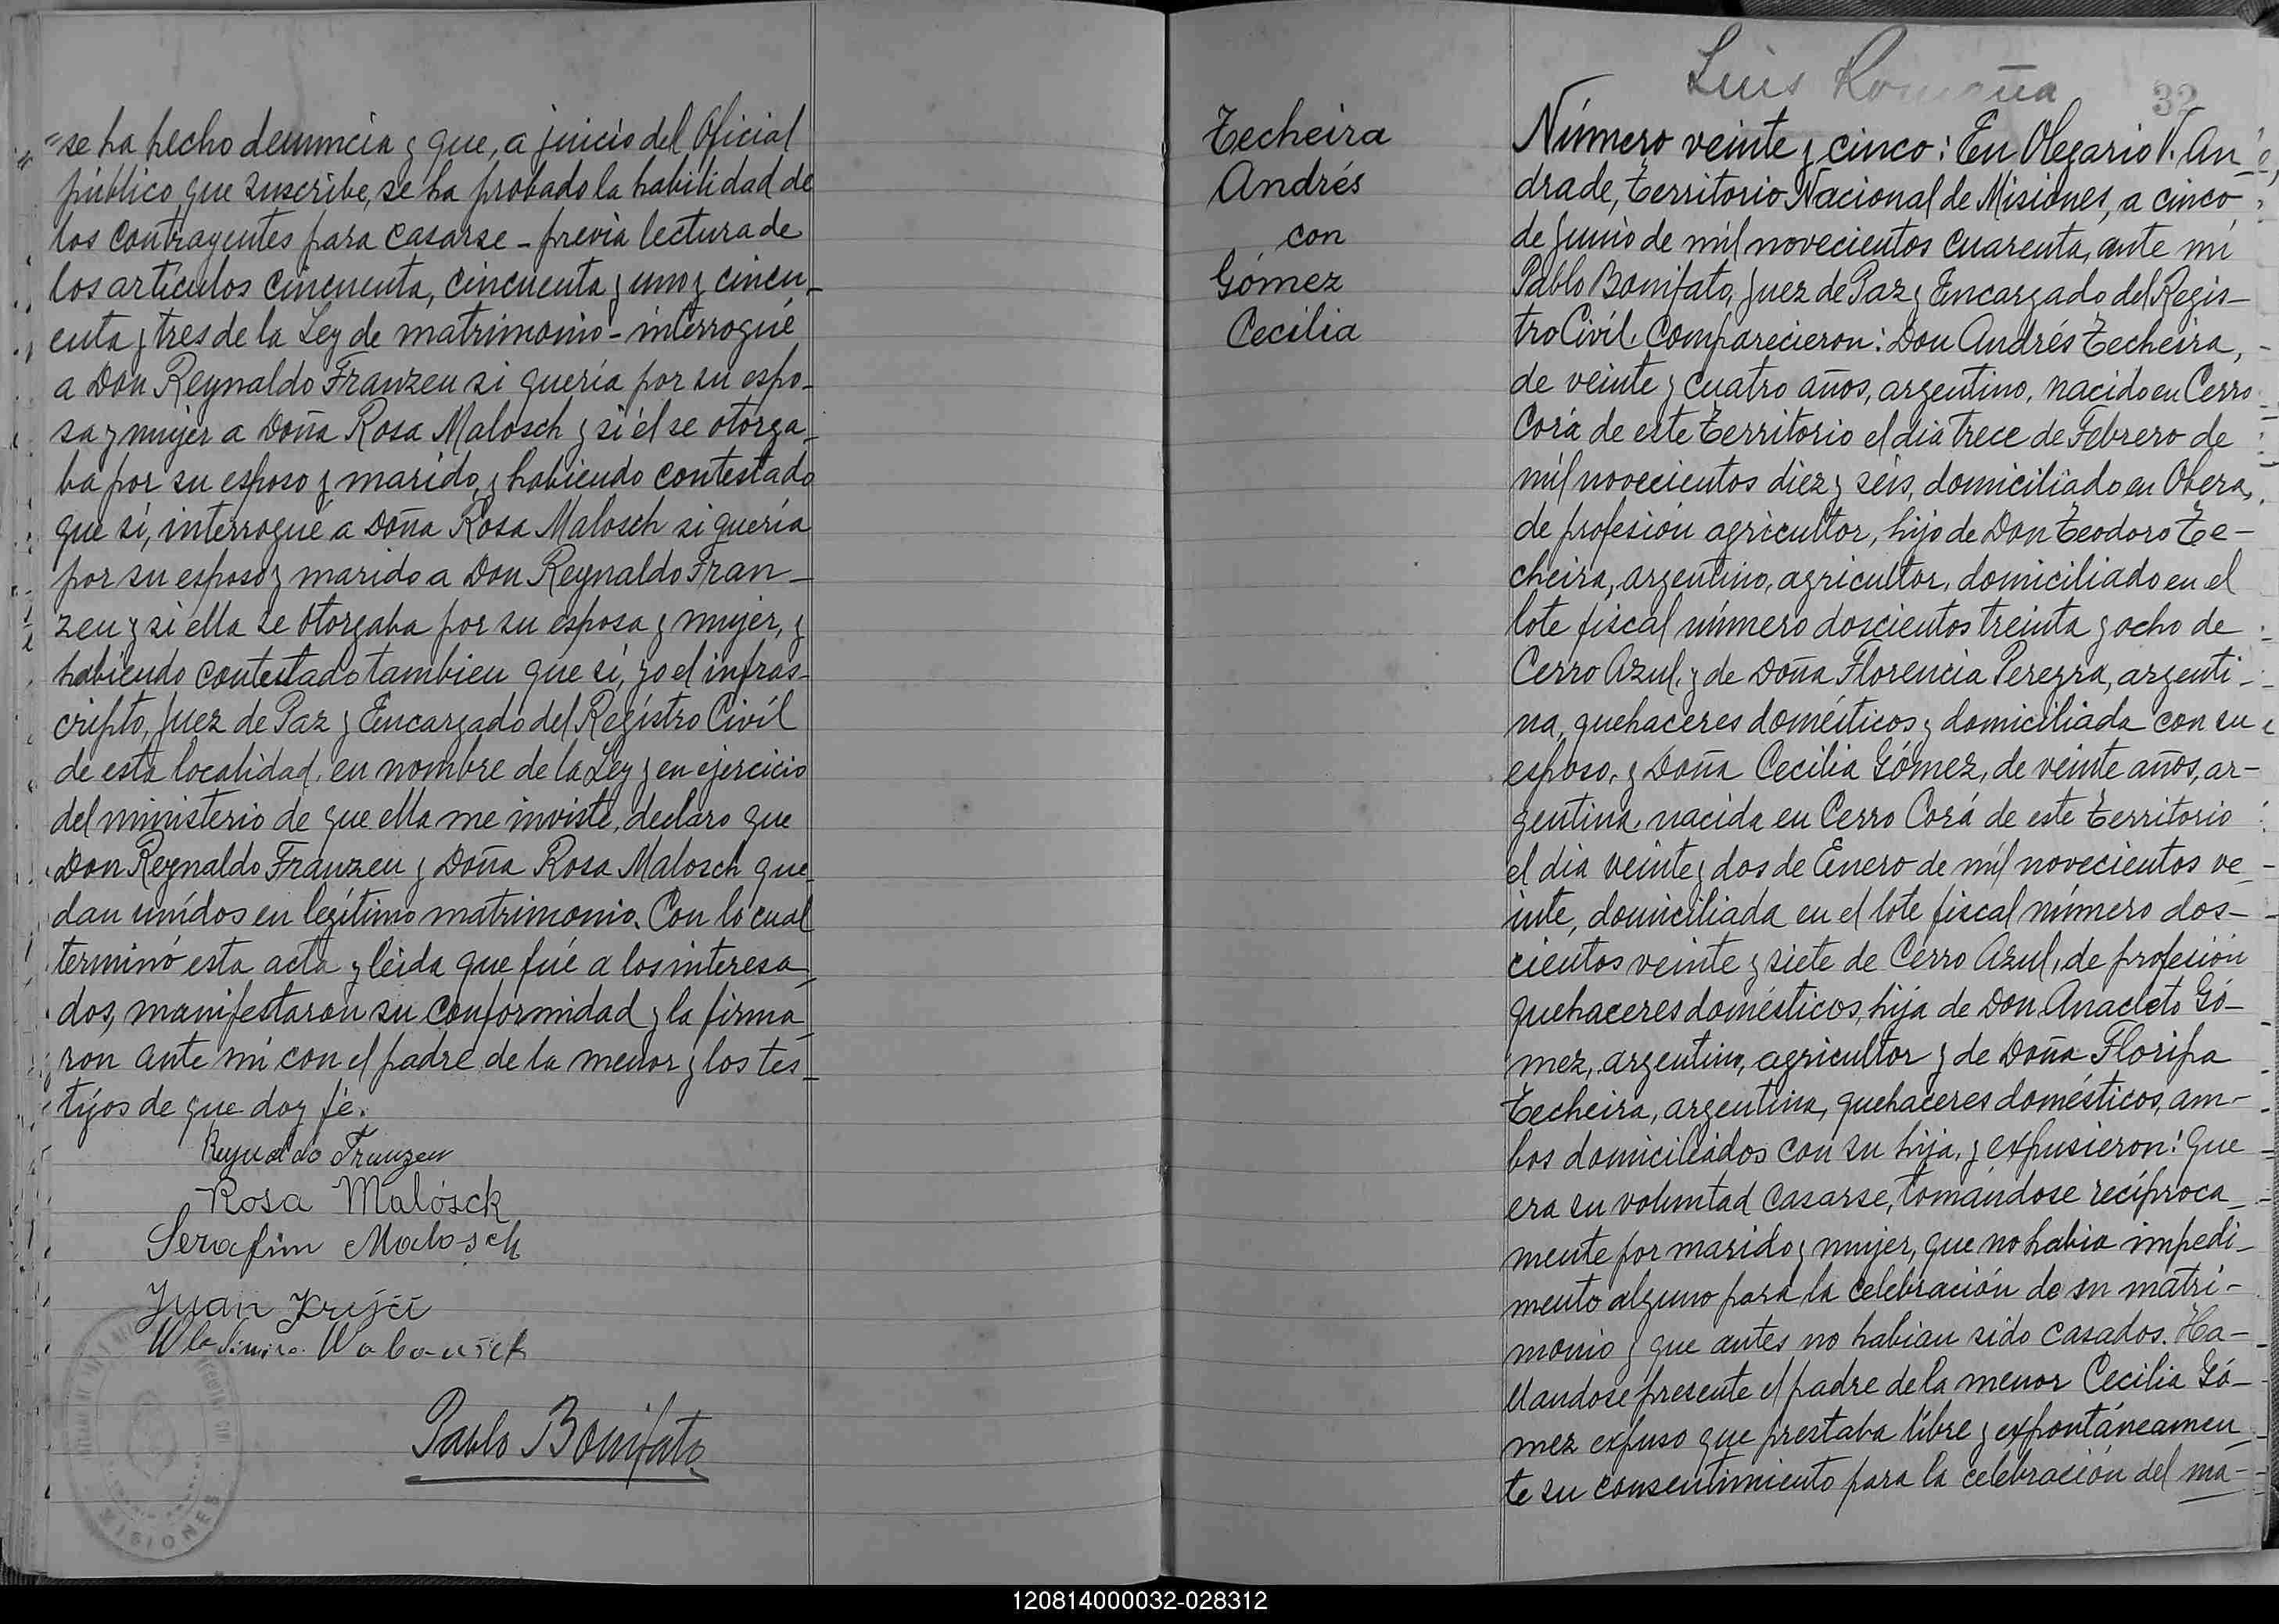 "se ha hecho denuncia y que, a juicio del Oficial
público que suscribe, se ha probado la habilidad de
los contrayentes para casarse - previa lectura de
los artículos cincuenta, cincuenta y uno y cincu-
enta y tres de la Ley de matrimonio - interrogué
a Don Reynaldo Franzen si quería por su espo-
sa y mujer a Doña Rosa Malosch y si él se otorga-
ba por su esposo y marido, y habiendo contestado
que sí, interrogué a Doña Rosa Malosch si quería
por su esposo y marido a Don Reynaldo Fran-
zen y si ella se otorgaba por su esposa y mujer, y
habiendo contestado tambien que sí, yo el infras-
cripto, Juez de Paz y Encargado del Registro Civíl
de esta localidad, en nombre de la Ley y en ejercicio
del ministerio de que ella me inviste, declaro que
Don Reynaldo Franzen y Doña Rosa Malosch que-
dan unídos en legítimo matrimonio. Con lo cual
terminó esta acta y leída que fué a los interesa-
dos, manifestaron su conformidad y la firma-
ron ante mí con el padre de la menor y los tes-
tigos de que doy fé.
Reynaldo Franzen
Rosa Malósck
Serafim Malosch
Juan Krejci
Pablo Bonifato
MISIONES
Luis
32
Techeira
Andrés
con
Gómez
Cecilia
Número veinte y cinco: En Olegario V. An-
drade, Territorio Nacional de Misiones, a cinco
de Junio de mil novecientos cuarenta, ante mí
Pablo Bonifato, Juez de Paz y Encargado del Regis-
tro Civíl. Comparecieron: Don Andrés Techeira,
de veinte y cuatro años, argentino, nacido en Cerro
Corá de este Territorio el día trece de Febrero de
mil novecientos diez y seis, domiciliado en Obera,
de profesión agricultor, hijo de Don Teodoro Te-
cheira, argentino, agricultor, domiciliado en el
lote fiscal número doscientos treinta y ocho de
Cerro Azul, y de Doña Florencia Pereyra, argenti-
na, quehaceres domésticos y domiciliada con su
esposo, y Doña Cecilia Gómez, de veinte años, ar-
gentina, nacida en Cerro Corá de este Territorio
el día veinte y dos de Enero de mil novecientos ve-
inte, domiciliada en el lote fiscal número dos-
cientos veinte y siete de Cerro Azul, de profesión
quehaceres domésticos, hija de Don Anacleto Gó-
mez, argentino, agricultor y de Doña Floripa
Techeira, argentina, quehaceres domésticos, am-
bos domiciliados con su hija, y expusieron: Que
era su voluntad casarse, tomándose recíproca-
mente por marido y mujer, que no había impedi-
mento alguno para la celebración de su matri-
monio y que antes no habian sido casados. Ha-
llandose presente el padre de la menor Cecilia Gó-
mez expuso que prestaba libre y expontáneamen-
te su consentimiento para la celebración del ma-
120814000032-028312